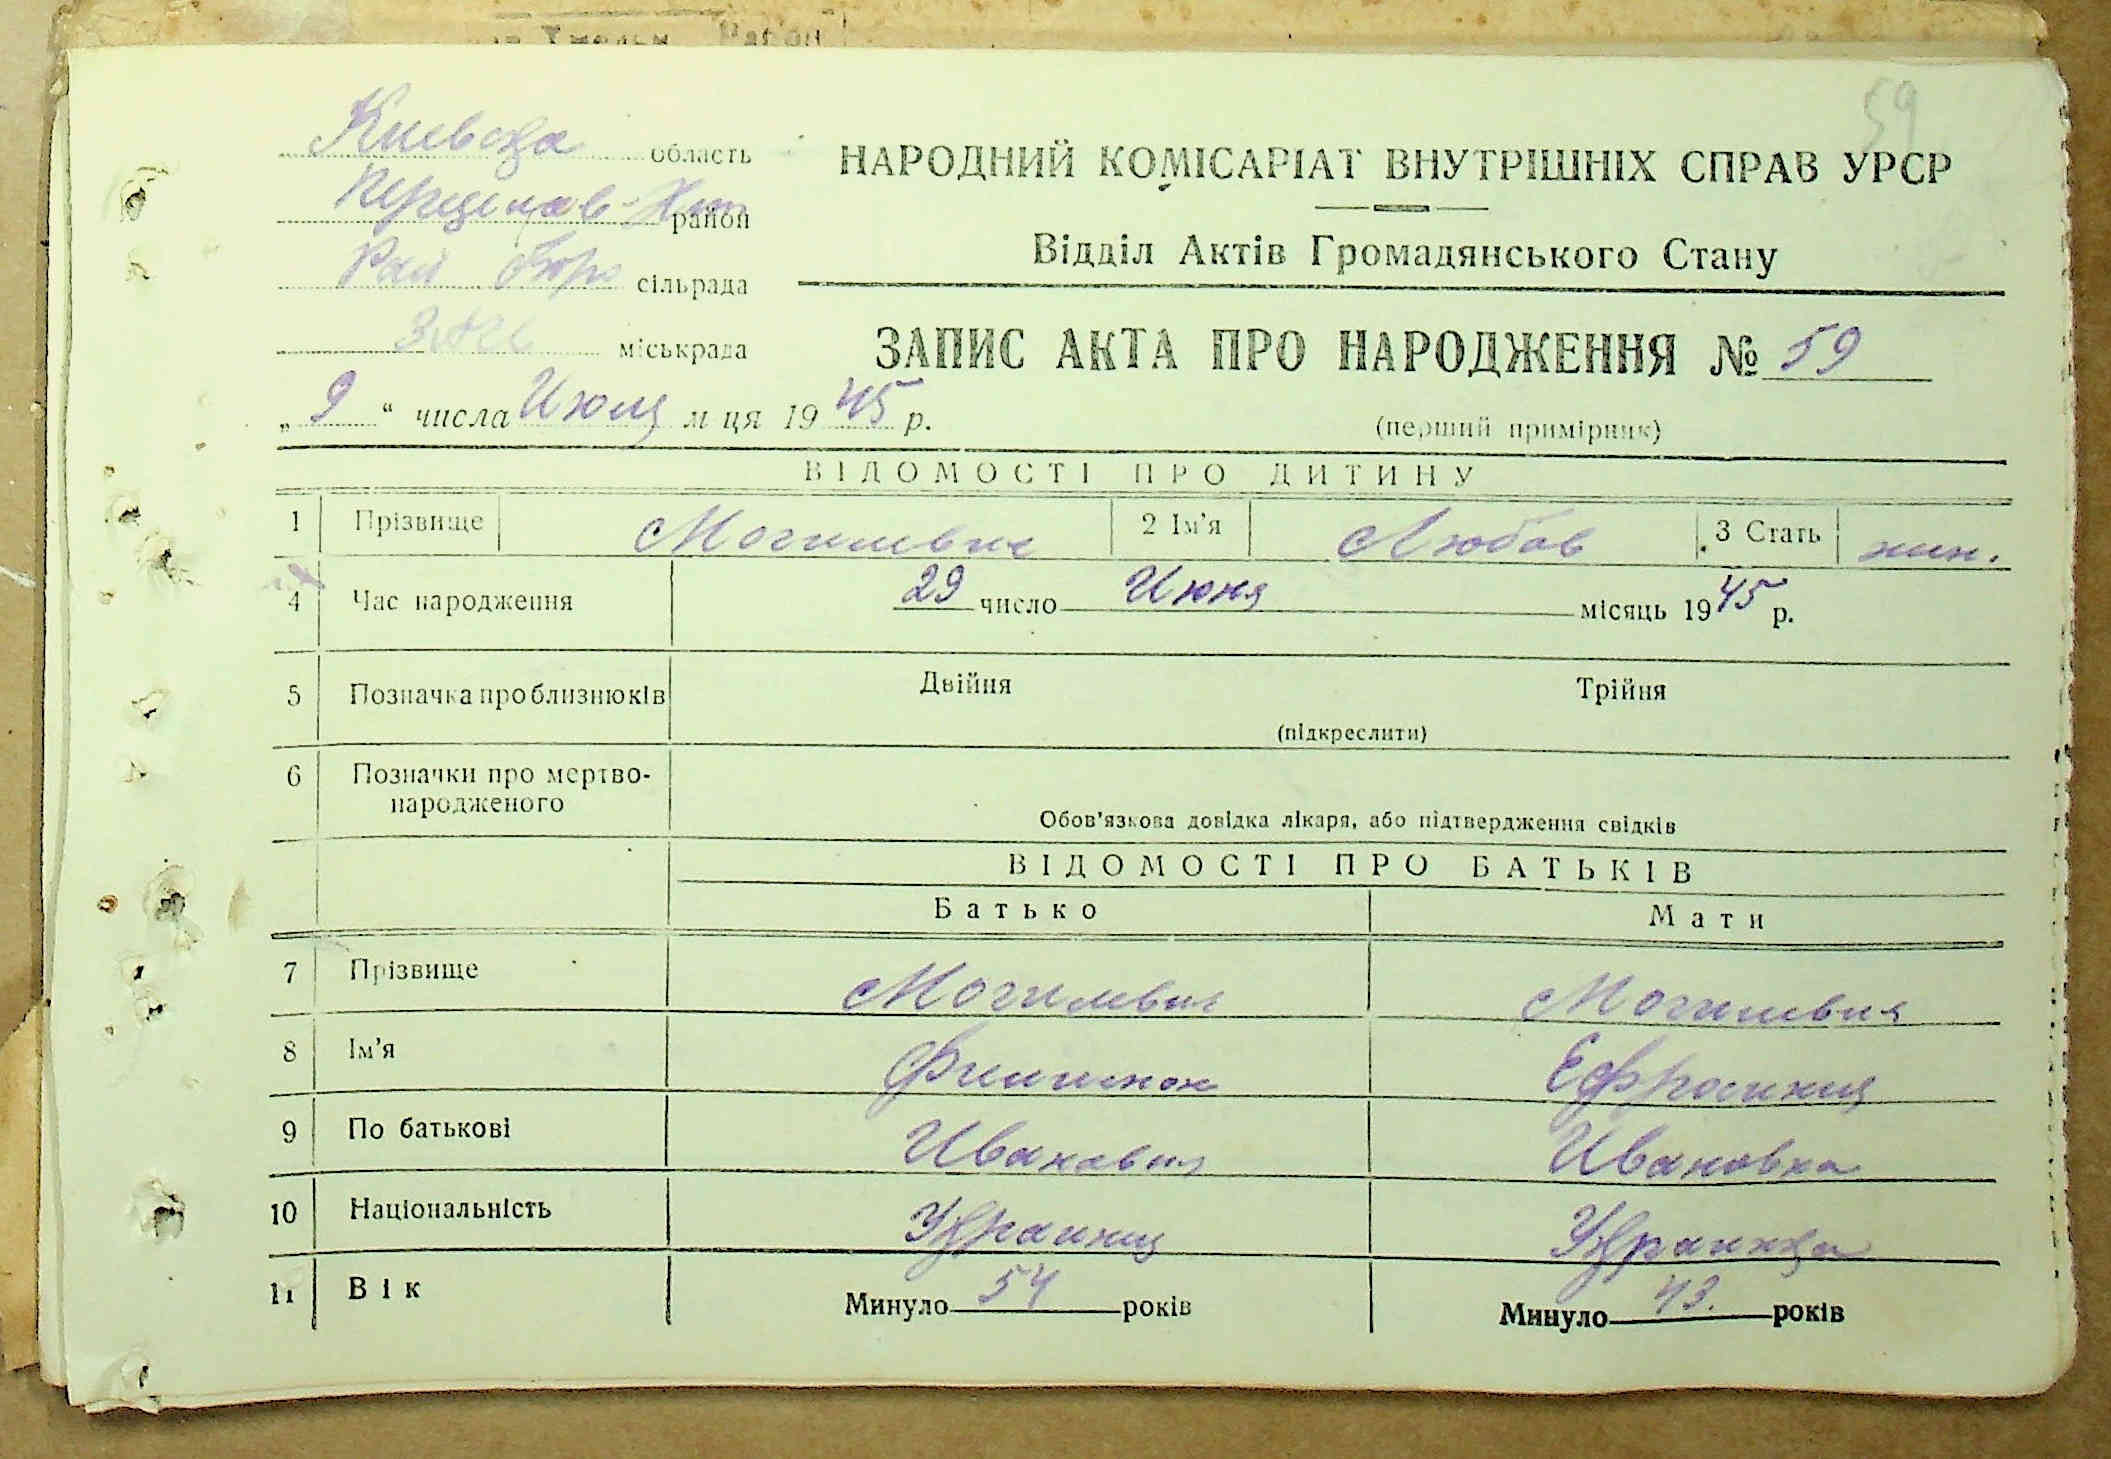 59
Киевска область
НАРОДНИЙ КОМІСАРІАТ ВНУТРІШНІХ СПРАВ УРСР
Переяслав-Хм район
Відділ Актів Громадянського Стану
Рай бюро сільрада
ЗАГС міськрада
ЗАПИС АКТА ПРО НАРОДЖЕННЯ № 59
„ 9 “ числа Июля м ця 19 45 р.
(перший примірник)
ВІДОМОСТІ ПРО ДИТИНУ
1 Прізвище Могилевич 2 Ім'я Любов 3 Стать жин.
4 Час народження 29 число Июня місяць 19 45 р.
5 Позначка про близнюків Двійня Трійня
(підкреслити)
6 Позначки про мертво-
народженого
Обов'язкова довідка лікаря, або підтвердження свідків
ВІДОМОСТІ ПРО БАТЬКІВ
Батько Мати
7 Прізвище Могилевич Могилевич
8 Ім'я Филимон Ефросиния
9 По батькові Иванович Ивановна
10 Національність Украинец Украинка
11 Вік Минуло 54 років Минуло 43. років